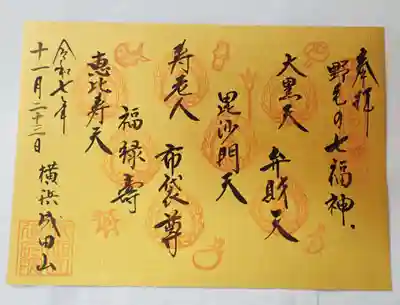 奉拝
野毛の七福神、
大黒天
弁財天
毘沙門天
寿老人
布袋尊
福禄寿
恵比寿天
令和七年
十一月二十三日
横浜成田山